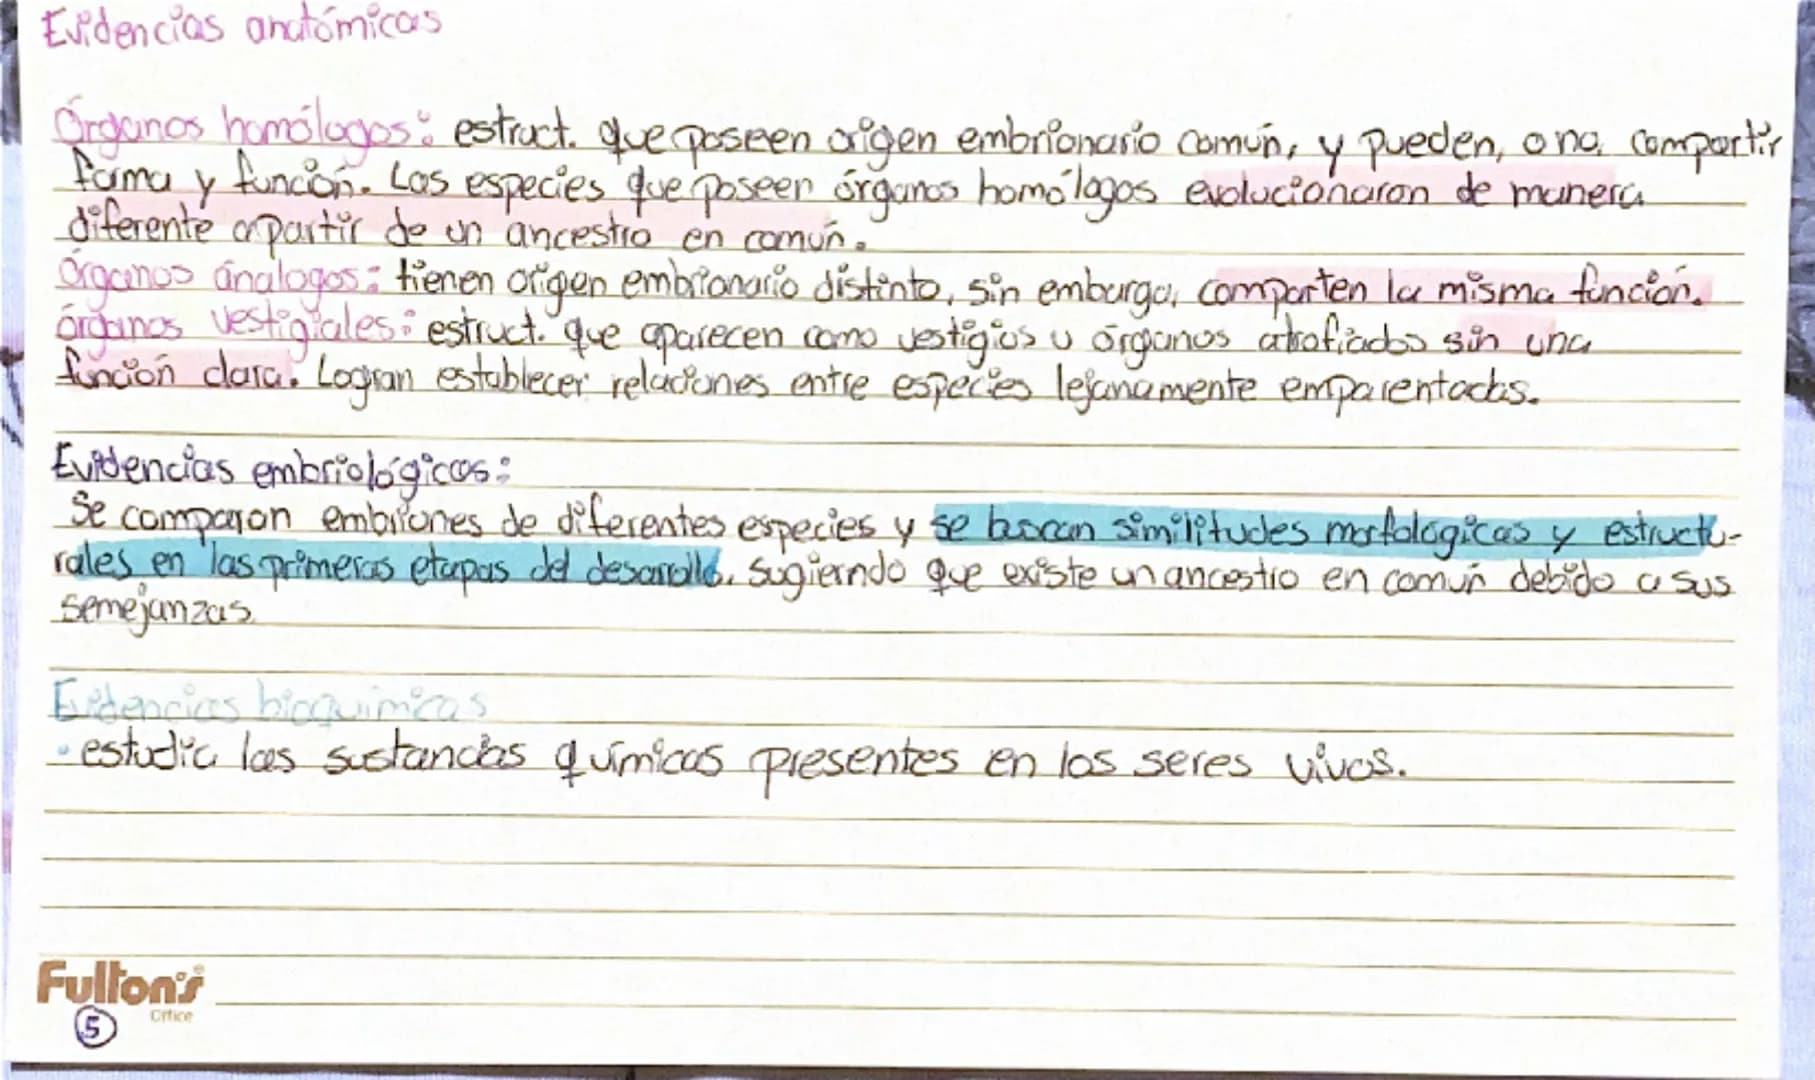 Evidencias anatómicas
Órganos homólogos: estruct. que poseen origen embrionario común, y pueden, o no, compartir
forma y función. Las especies que poseen órganos homólogos evolucionaron de manera
diferente a partir de un ancestro en común.
Órganos ánalogos: tienen origen embrionario distinto, sin embargo, comparten la misma función.
órganos vestigiales: estruct. que aparecen como vestigios u órganos atrofiados sin una
función clara. Logran establecer relaciones entre especies lejanamente emparentadas.
Evidencias embriológicas:
Se comparan embriones de diferentes especies y se buscan similitudes morfológicas y estructu-
rales en las primeras etapas del desarrollo, sugierndo que existe un ancestro en común debido a sus
semejanzas.
Evidencias bioquímicas
· estudia las sustancias químicas presentes en los seres vivos.
Fulton's
Office
5